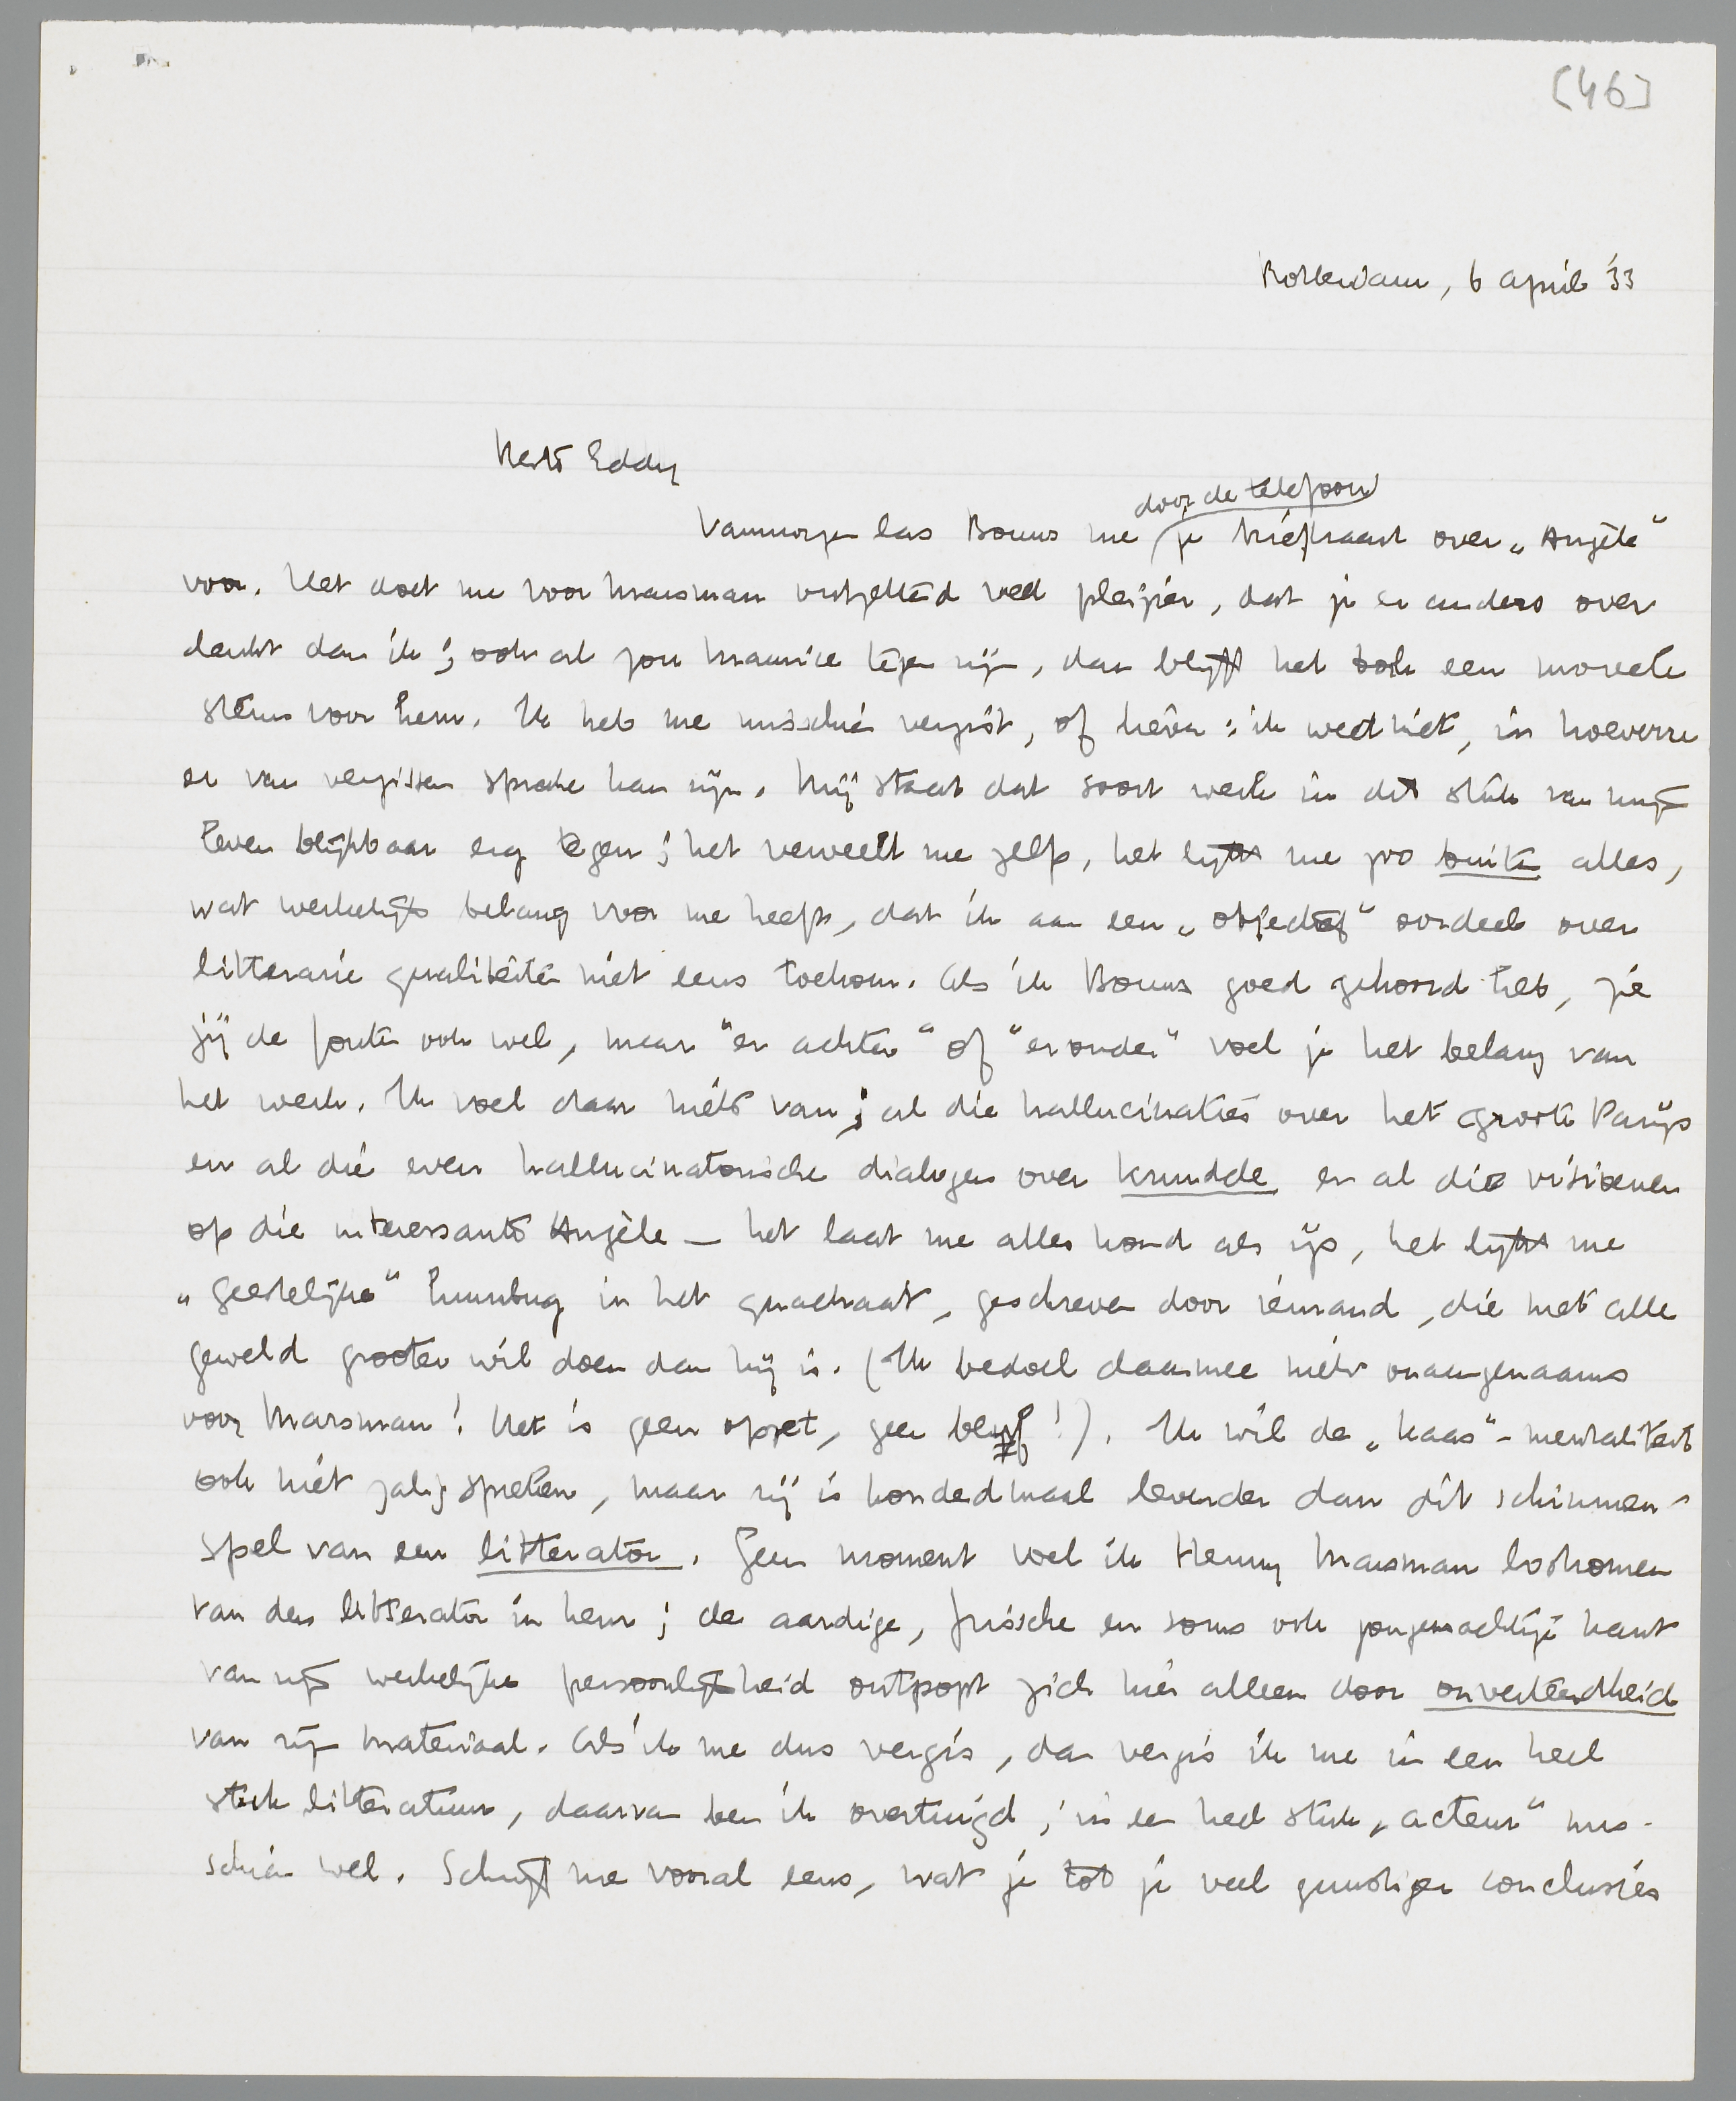 [46]
Rotterdam, 6 april '33
Beste Eddy
door de telefoon
Vanmorgen las Bouws me je briefkaart over „Angèle"
voor. Het doet me voor Marsman ontzettend veel pleizier, dat je er anders over
denkt dan ik; ook al zou Maurice tegen zijn, dan blijft het toch een moreele
steun voor hem. Ik heb me misschien vergist, of liever: ik weet niet, in hoeverre
er van vergissen sprake kan zijn. Mij staat dat soort werk in dit stuk van mijn
leven blijkbaar erg tegen; het verveelt me zelfs, het lijkt me zoo buiten alles,
wat werkelijk belang voor me heeft, dat ik aan een „objectief" oordeel over
litteraire qualiteiten niet eens toekom. Als ik Bouws goed gehoord heb, zie
jij de fouten ook wel, maar "er achter" of "eronder" voel je het belang van
het werk. Ik voel daar niets van; al die hallucinaties over het groote Parijs
en al die even hallucinatorische dialogen over kunde en al die visioenen
op die interessante Angèle — het laat me alles koud als ijs, het lijkt me
„geestelijke" humbug in het quadraat, geschreven door iemand, die met alle
geweld grooter wil doen dan hij is. (Ik bedoel daarmee niets onaangenaams
voor Marsman! Het is geen opzet, geen bluf!). Ik wil de „Kaas"-mentaliteit
ook niet zalig spreken, maar zij is honderdmaal levender dan dit schimmen-
spel van een litterator. Geen moment voel ik Henny Marsman loskomen
van den litterator in hem; de aardige, frissche en soms ook jongensachtige kant
van zijn werkelijke persoonlijkheid ontpopt zich hier alleen door onverteerdheid
van zijn materiaal. Als ik me dus vergis, dan vergis ik me in een heel
stuk litteratuur, daarvan ben ik overtuigd; in een heel stuk „acteur" mis-
schien wel. Schrijf me vooral eens, wat je tot je veel gunstiger conclusies